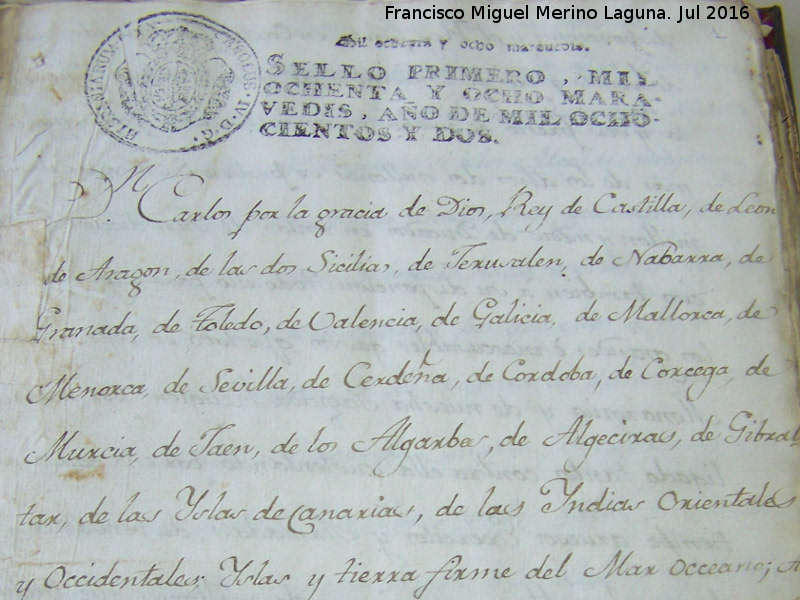 Francisco Miguel Merino Laguna. Jul 2016
HISPANIARUM
CAROLUS IV D. G.
Mil ochenta y ocho maravedis.
SELLO PRIMERO, MIL
OCHENTA Y OCHO MARA-
VEDIS, AÑO DE MIL OCHO-
CIENTOS Y DOS.
Dn Carlos por la gracia de Dios, Rey de Castilla, de Leon
de Aragon, de las dos Sicilias, de Jerusalen, de Nabarra, de
Granada, de Toledo, de Valencia, de Galicia, de Mallorca, de
Menorca, de Sevilla, de Cerdeña, de Cordoba, de Corcega, de
Murcia, de Jaen, de los Algarbes, de Algeciras, de Gibral
tar, de las Yslas de Canarias, de las Yndias Orientales
y Occidentales, Yslas y tierra firme del Mar Occeano;